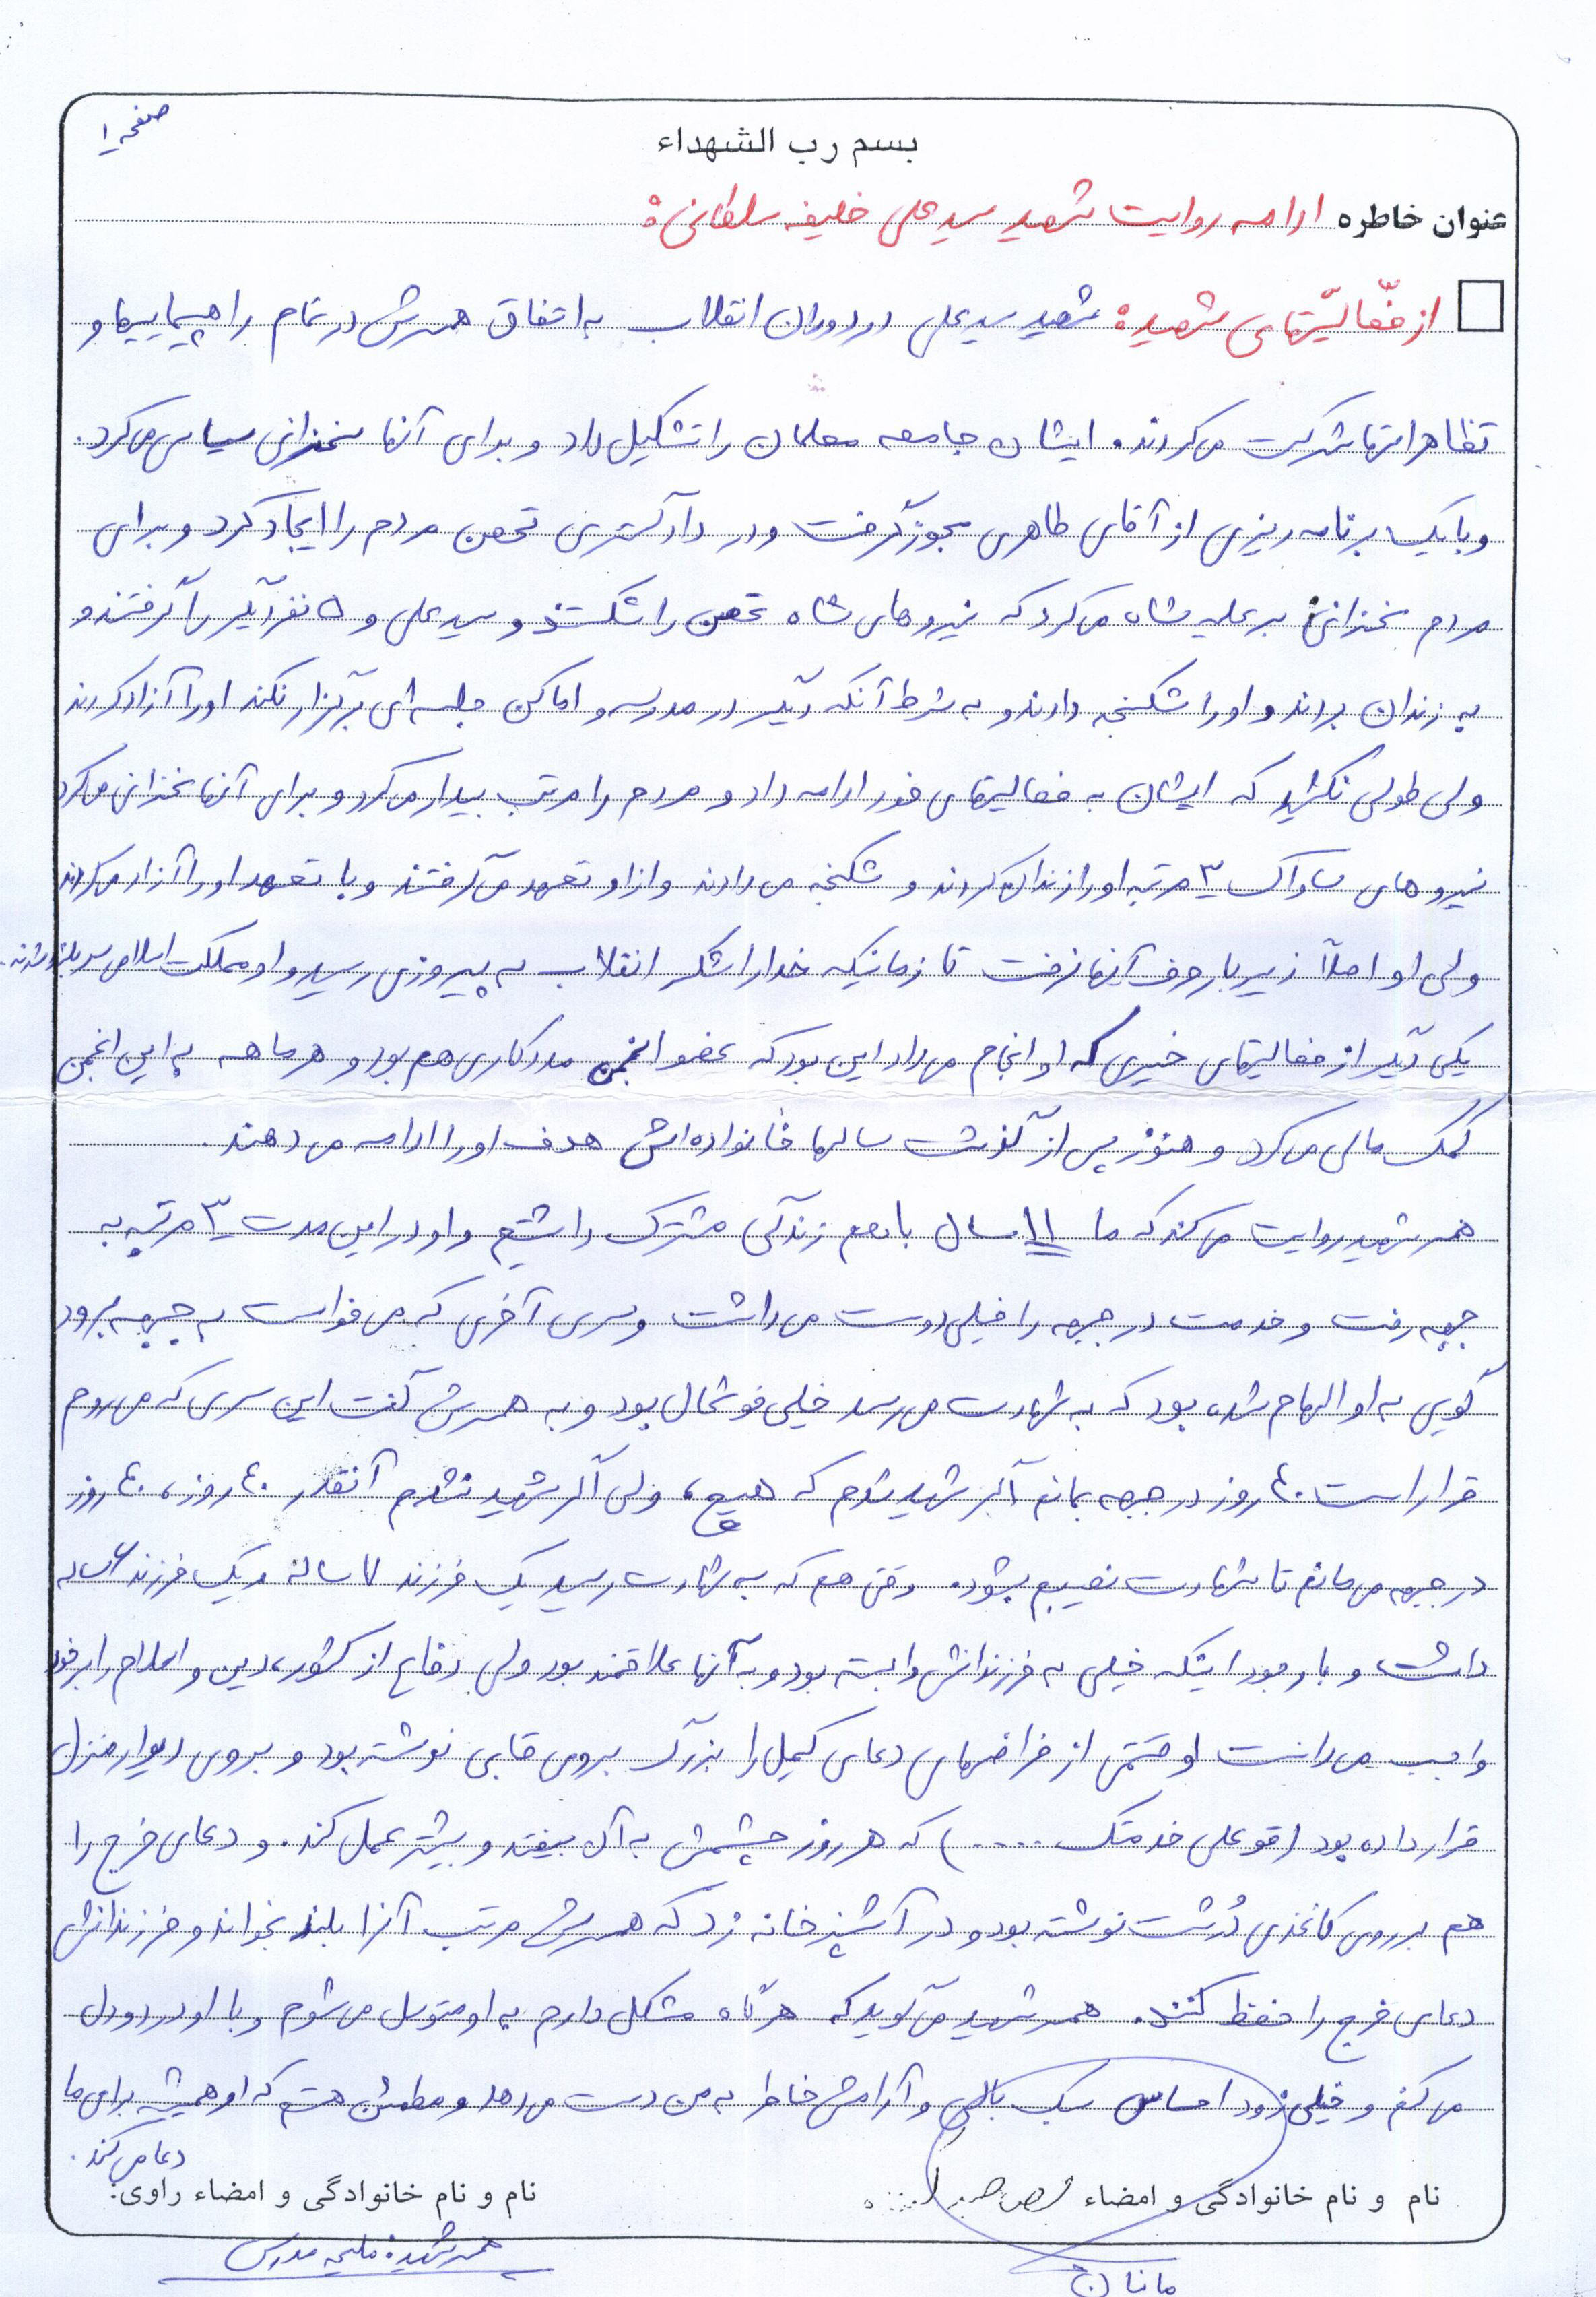 صفحه ۱
بسم رب الشهداء
عنوان خاطره ادامه روایت شهید سید علی خلیفه سلطانی:
از فعّالیّتهای شهید: شهید سید علی در دوران انقلاب به اتفاق همسرش در تمام راهپیماییها و
تظاهراتها شرکت می‌کردند. ایشان جامعه معلمان را تشکیل داد و برای آنها سخنرانی سیاسی می‌کرد.
و با یک برنامه ریزی از آقای طاهری مجوز گرفت و در دادگستری تحصن مردم را ایجاد کرد و برای
مردم سخنرانی بر علیه شاه می‌کرد که نیروهای شاه تحصن را شکستند و سید علی و ۵ نفر دیگر را گرفتند و
به زندان بردند و او را شکنجه دادند و به شرط آنکه دیگر در مدرسه و اماکن جلسه‌ای برگزار نکند او را آزاد کردند
ولی طولی نکشید که ایشان به فعالیتهای خود ادامه داد و مردم را مرتب بیدار می‌کرد و برای آنها سخنرانی می‌کرد
نیروهای ساواک ۳ مرتبه او را زندان کردند و شکنجه می‌دادند و از او تعهد می‌گرفتند و با تعهد او را آزاد می‌کردند
ولی او اصلاً زیر بار حرف آنها نرفت تا زمانیکه خدا را شکر انقلاب به پیروزی رسید و او مملکت اسلامی سربلند شدند.
یکی دیگر از فعالیتهای خیری که او انجام می‌داد این بود که عضو انجمن مددکاری هم بود و هر ماهه به این انجمن
کمک مالی می‌کرد و هنوز پس از گذشت سالها خانواده‌اش هدف او را ادامه می‌دهند.
همسر شهید روایت می‌کند که ما ۱۱ سال با هم زندگی مشترک داشتیم و او در این مدت ۳ مرتبه به
جبهه رفت و خدمت در جبهه را خیلی دوست می‌داشت و سری آخری که می‌خواست به جبهه برود
گویی به او الهام شده بود که به شهادت می‌رسد خیلی خوشحال بود و به همسرش گفت این سری که می‌روم
قرار است ۴۰ روز در جبهه بمانم اگر شهید شدم که هیچ، ولی اگر شهید نشدم آنقدر ۴۰ روز، ۴۰ روز
در جبهه می‌مانم تا شهادت نصیبم بشود. وقتی هم که به شهادت رسید یک فرزند ۷ ساله و یک فرزند ۲ ساله
داشت و با وجود اینکه خیلی به فرزندانش وابسته بود و به آنها علاقمند بود ولی دفاع از کشور، دین و اسلام را بر خود
واجب می‌دانست او قسمتی از فرازهای دعای کمیل را بزرگ بروی قابی نوشته بود و بروی دیوار منزل
قرار داده بود (قو علی خدمتک ....) که هر روز چشمش به آن بیفتد و بیشتر عمل کند. و دعای فرج را
هم بر روی کاغذی دُرشت نوشته بود و در آشپزخانه زد که همسرش مرتب آنرا بلند بخواند و فرزندانش
دعای فرج را حفظ کنند. همسر شهید می‌گوید که هرگاه مشکل دارم به او متوسل می‌شوم و با او درد و دل
می‌کنم و خیلی زود احساس سبک بالی و آرامش خاطر به من دست می‌دهد و مطمئن هستم که او همیشه برای ما
دعا می‌کند.
نام و نام خانوادگی و امضاء
نام و نام خانوادگی و امضاء راوی:
همسر شهید: ملیحه مدرس